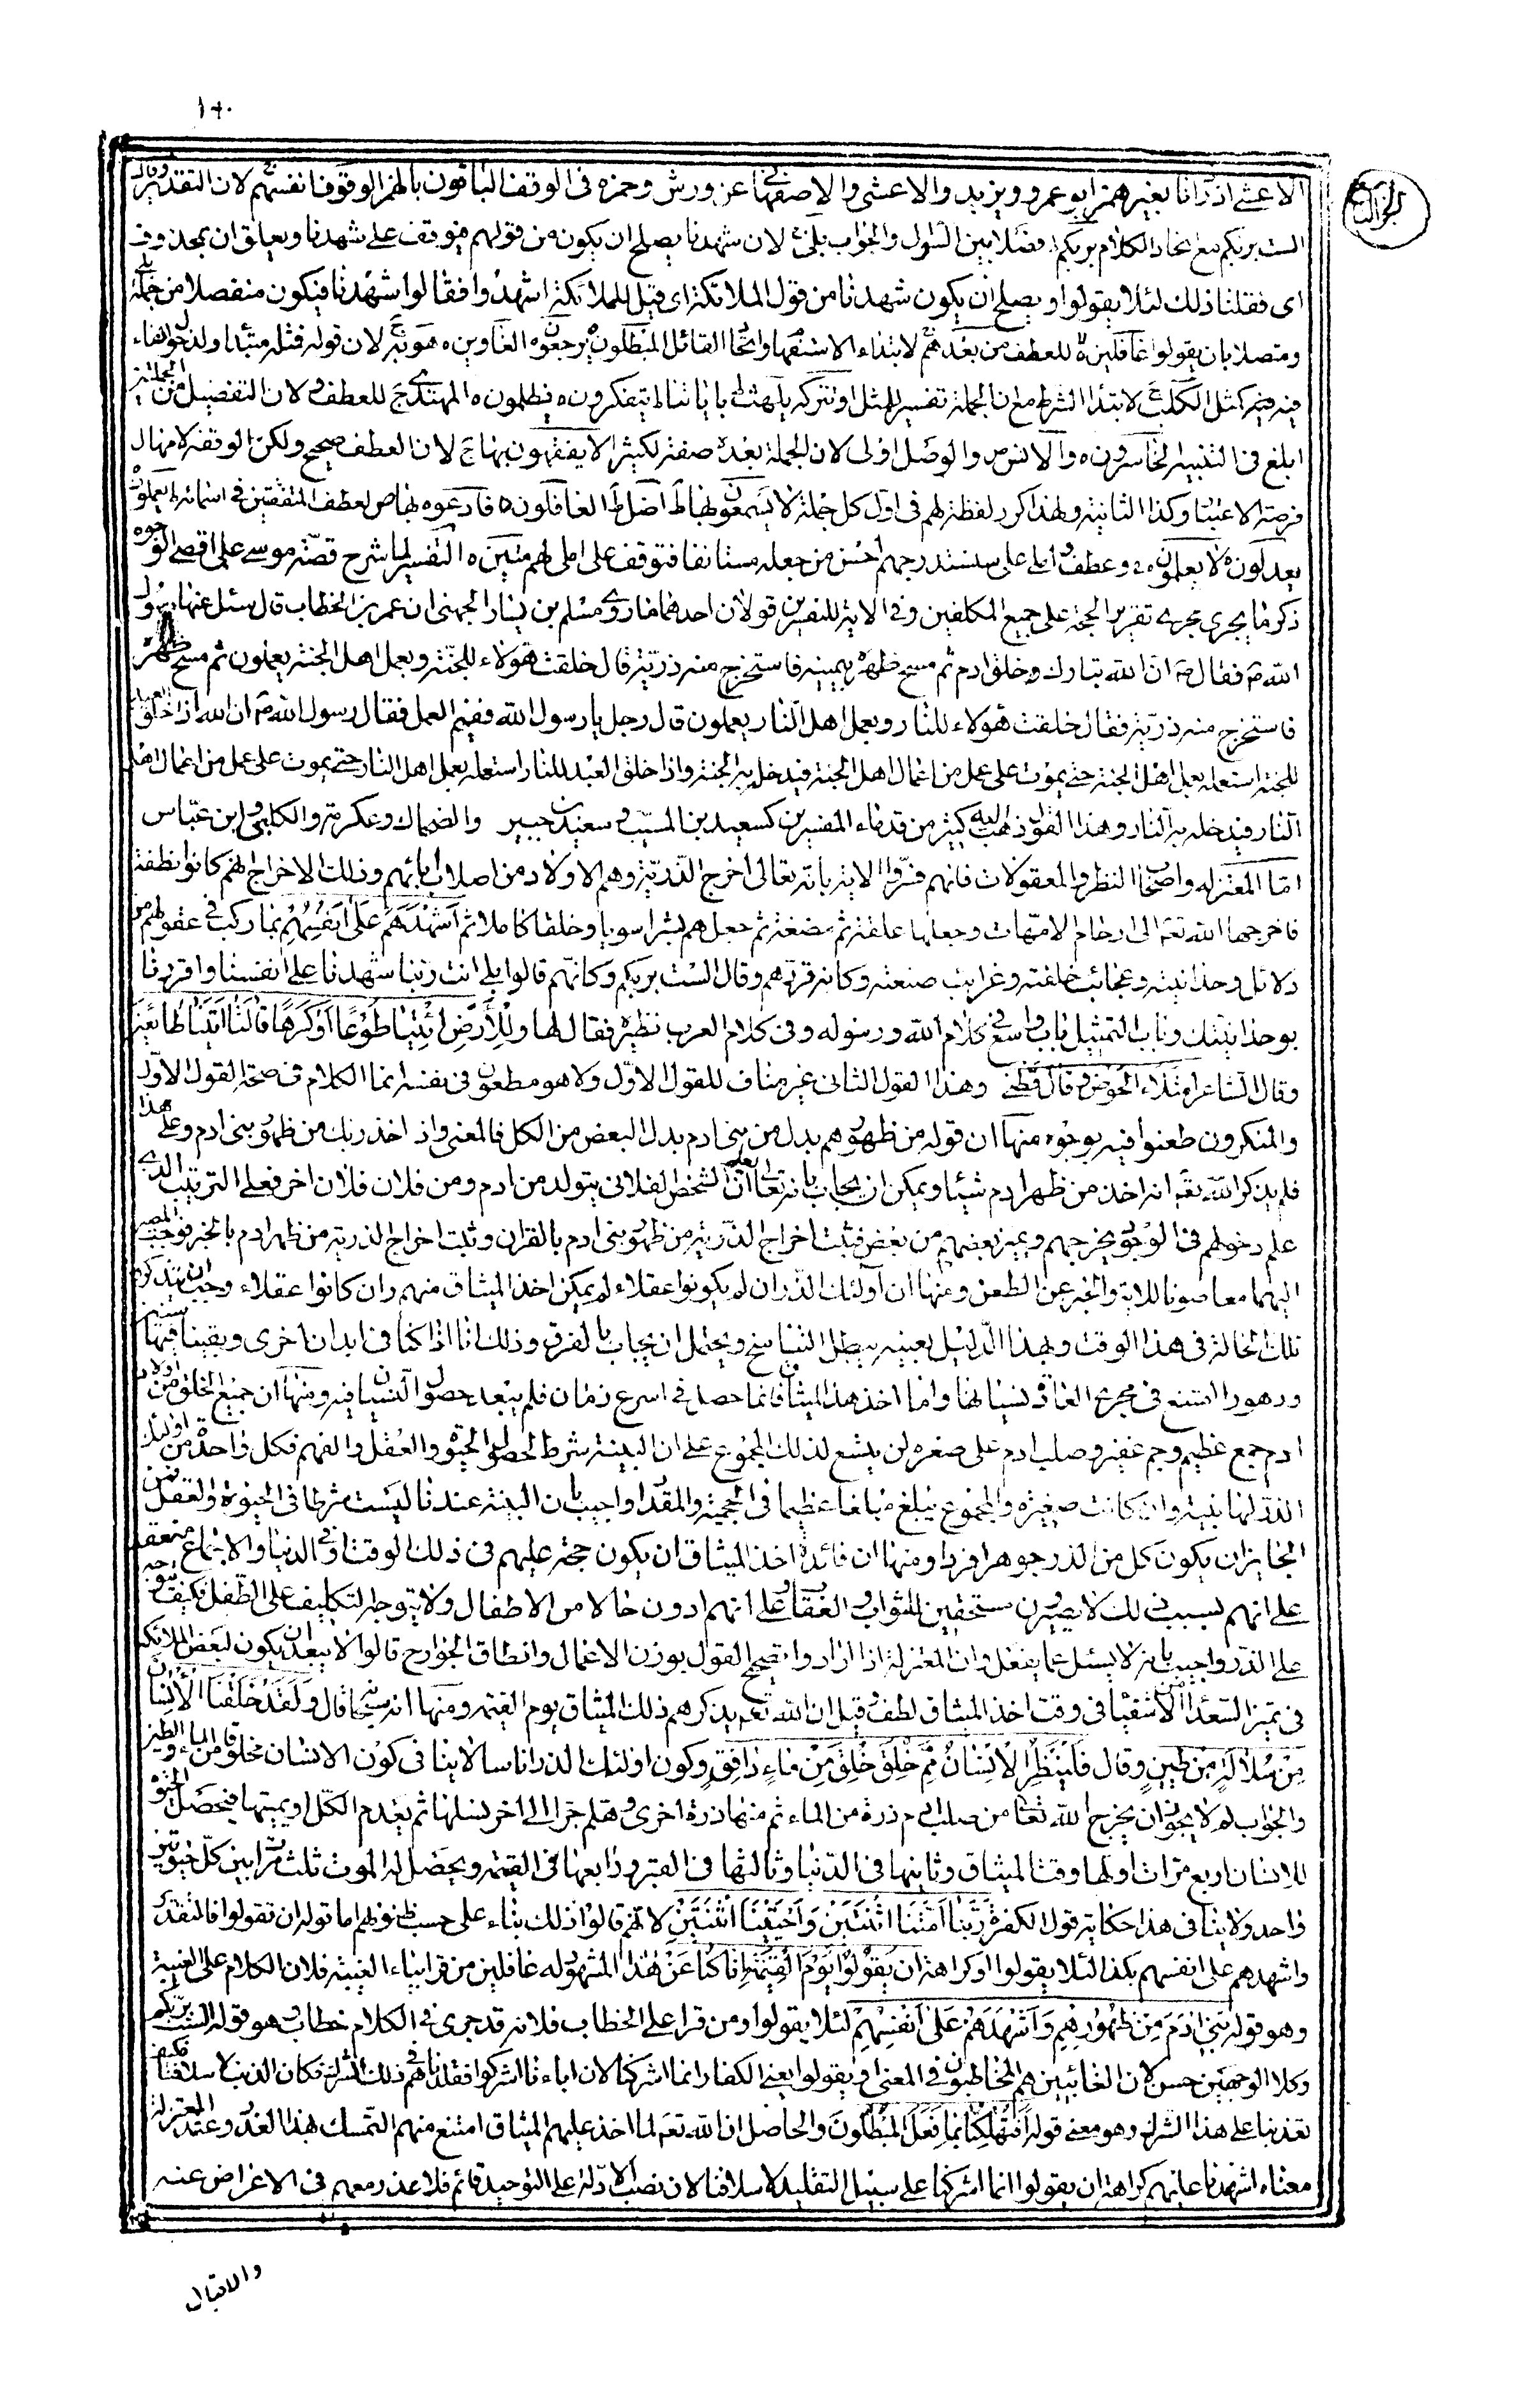 ١٢٠
الجزء التاسع
الاعشى اذ ذرانا بغير همز ابو عمرو ويزيد والاعشى والاصفهانى عن ورش وحمزه فى الوقف الباقون بالهمز الوقوف انفسهم لان التقدير وقال
الست بربكم مع اتحاد الكلام بربكم فصلا بين السؤل والجواب بلى لان شهدنا يصلح ان يكون من قولهم فيوقف على شهدنا ويعلق ان بمحذوف
اى فقلنا ذلك لئلا يقولوا ويصلح ان يكون شهدنا من قول الملائكة اى قيل للملائكة اشهدوا فقالوا شهدنا فيكون منفصلا من جملة بلى
ومتصلا بان يقولوا غافلين ه للعطف من بعدهم لابتداء الاستفهام واتحاد القائل المبطلون ه يرجعون ه الغاوين ه هويه لان قوله فمثله مبتدا ولدخول الفاء
فيه كمثل الكلب لابتدا الشرط مع ان الجملة تفسير للمثل او تتركه يلهث باياتنا يتفكرون ه يظلمون ه المهتدى ج للعطف ولان التفصيل من الجملتين
ابلغ فى التنبيه الخاسرون ه والانس والوصل اولى لان الجملة بعده صفة لكثيرا لا يفقهون بها ج لان العطف صحيح ولكن الوقفة لامهال
فرصة الاعتبار وكذا الثانية ولهذا كرر لفظة لهم فى اول كل جملة لا يسمعون بها ط اضل ط الغافلون ه فادعوه بها ص لعطف المتفقتين فى اسمائه ط يعملون
يعدلون ه لا يعلمون ه وعطف املى على سنستدرجهم احسن من جعله مستانفا فتوقف على املى لهم متين ه التفسير لما شرح قصة موسى على اقصى الوجوه
ذكر ما يجرى مجرى تقرير الحجة على جميع المكلفين وفى الاية للمفسرين قولان احدهما ما روى مسلم بن يسار الجهنى ان عمر بن الخطاب قال سئل عنها رسول
الله ص فقال ص ان الله تبارك وخلق ادم ثم مسح ظهره بيمينه فاستخرج منه ذرية قال خلقت هؤلاء للجنة وبعمل اهل الجنة يعملون ثم مسح ظهره
فاستخرج منه ذرية فقال خلقت هؤلاء للنار وبعمل اهل النار يعملون قال رجل يا رسول الله ففيم العمل فقال رسول الله ص ان الله اذا خلق العبد
للجنة استعمله بعمل اهل الجنة حتى يموت على عمل من اعمال اهل الجنة فيدخل به الجنة واذا خلق العبد للنار استعمله بعمل اهل النار حتى يموت على عمل من اعمال اهل
النار فيدخله به النار وهذا القول ذهب اليه كثير من قدماء المفسرين كسعيد بن المسيب وسعيد بن جبير والضحاك وعكرمة والكلبى وابن عباس
اما المعتزله واصحاب النظر والمعقولات فانهم فسروا الاية بانه تعالى اخرج الذرية وهم الاولاد من اصلاب ابائهم وذلك الاخراج انهم كانوا نطفة
فاخرجها الله تعه الى ارحام الامهات وجعلها علقة ثم مضغة ثم جعلهم بشرا سويا وخلقا كاملا ثم اشهدهم على انفسهم بما ركب فى عقولهم من
دلائل وحدانيته وعجائب خلقته وغرايب صنعته وكانه قررهم وقال الست بربكم وكانهم قالوا بلى انت ربنا شهدنا على انفسنا واقررنا
بوحدانيتك وباب التمثيل باب واسع فى كلام الله ورسوله وفى كلام العرب نظيره فقال لها وللارض ائتيا طوعا او كرها قالتا اتينا طائعين
وقال الشاعر امتلاء الحوض وقال قطنى وهذا القول الثانى غير مناف للقول الاول ولا هو مطعون فى نفسه انما الكلام فى صحة القول الاول
والمنكرون طعنوا فيه بوجوه منها ان قوله من ظهورهم بدل من بنى ادم بدل البعض من الكل فالمعنى واذ اخذ ربك من ظهور بنى ادم وعلى هذا
فلم يذكر الله تعه انه اخذ من ظهر ادم شيئا ويمكن ان يجاب بانه تعالى يعلم ان الشخص الفلانى يتولد من ادم ومن فلان فلان اخر فعلى الترتيب الذى
علم دخولهم فى الوجود يخرجهم ويميز بعضهم من بعض فثبت اخراج الذرية من ظهور بنى ادم بالقران وثبت اخراج الذرية من ظهر ادم بالخبر فوجب المصير
اليهما معا صونا للاية والخبر عن الطعن ومنها ان اولئك الذر ان لم يكونوا عقلاء لم يمكن اخذ الميثاق منهم وان كانوا عقلاء وجب ان يتذكروا
تلك الحالة فى هذا الوقت وبهذا الدليل بعينه يبطل التناسخ ويحتمل ان يجاب بالفرق وذلك انا اذا كنا فى ابدان اخرى وبقينا فيها سنين
ودهورا امتنع فى مجرى العادة نسيانها واما اخذ هذا الميثاق فانما حصل فى اسرع زمان فلم يبعد حصول النسيان فيه ومنها ان جميع الخلق من اولاد
ادم جمع عظيم وجم غفير وصلب ادم على صغره لن يتسع لذلك المجموع على ان البينة شرط لحصول الحيوة والعقل والفهم فكل واحد من اولئك
الذر لها بنية وان كانت صغيرة والمجموع يبلغ مبلغا عظيما فى الحجمية والمقدار واجيب بان البنية عندنا ليست شرطا فى الحيوة والعقل فمن
الجايز ان يكون كل من الذر جوهرا فردا ومنها ان فائدة اخذ الميثاق ان يكون حجة عليهم فى ذلك الوقت او فى الدنيا والاجماع منعقد
على انهم بسبب ذلك لا يصيرون مستحقين للثواب والعقاب على انهم ادون حالا من الاطفال ولا يتوجه التكليف على الطفل فكيف يتوجه
على الذر واجيب بانه لا يسئل عما يفعل وان المعتزلة اذا ارادوا تصحيح القول بوزن الاعمال وانطاق الجوارح قالوا لا يبعد ان يكون لبعض الملائكة
فى تميز السعداء من الاشقياء فى وقت اخذ الميثاق لطف وقيل ان الله تعه يذكرهم ذلك الميثاق يوم القيمه ومنها انه سبحانه قال ولقد خلقنا الانسان
من سلالة من طين وقال فلينظر الانسان مم خلق خلق من ماء دافق وكون اولئك الذر اناسا لا ينافى كون الانسان مخلوقا من الماء والطين
والجواب لم لا يجوز ان يخرج الله تعالى من صلب ادم ذرة من الماء ثم منها ذرة اخرى وهلم جرا الى اخر نسلها ثم يعدم الكل او يميتها فيحصل الحيوة
للانسان اربع مرات اولها وقت الميثاق وثانيها فى الدنيا وثالثها فى القبر ورابعها فى القيمه ويحصل له الموت ثلث مرات بين كل حيوتين
واحد ولا ينافى هذا حكاية قول الكفرة ربنا امتنا اثنتين واحييتنا اثنتين لانهم قالوا ذلك بناء على حسب ظنونهم اما قوله ان تقولوا فالتقدير
واشهدهم على انفسهم بكذا لئلا يقولوا او كراهة ان يقولوا يوم القيمة انا كنا عن هذا المشهود له غافلين من قرا بياء الغيبة فلان الكلام على الغيبة
وهو قوله بنى ادم من ظهورهم واشهدهم على انفسهم لئلا يقولوا ومن قرا على الخطاب فلانه قد جرى فى الكلام خطاب وهو قوله الست بربكم
وكلا الوجهين حسن لان الغائبين هم المخاطبون فى المعنى او يقولوا يعنى الكفار انما اشركنا لان اباءنا اشركوا فقلدناهم فى ذلك الشرك فكان الذنب لاسلافنا فكيف
تعذبنا على هذا الشرك وهو معنى قوله افتهلكنا بما فعل المبطلون والحاصل ان الله تعه لما اخذ عليهم الميثاق امتنع منهم التمسك بهذا العذر وعند المعتزلة
معناه اشهدنا عليهم كراهة ان يقولوا انما اشركنا على سبيل التقليد لاسلافنا لان نصب الادلة على التوحيد قائم فلا عذر معهم فى الاعراض عنه
والاقبال